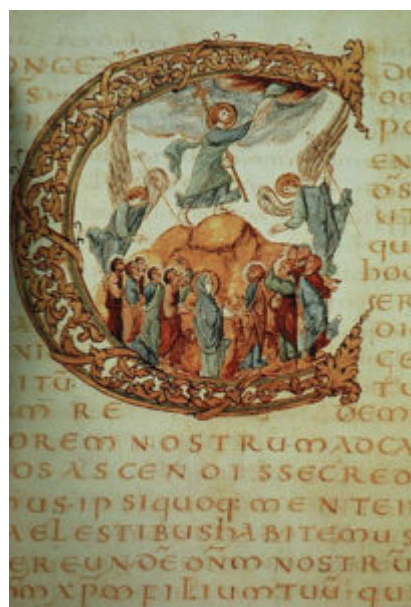 ONCE DE
S
PO
EN
D̄S
UT
QU
hOD
ER
DI
NI GE
ITU TU
M̄ RE DEM
OREM NOSTRUM ADCA
OS ASCENDISSE CRED
US·IPSI QUOQ: MENTE I
AELESTIBUS hABITEMUS
ERE UNDE DN̄M NOSTRŪ
M XP̄M FILIUM TUŪ· QU